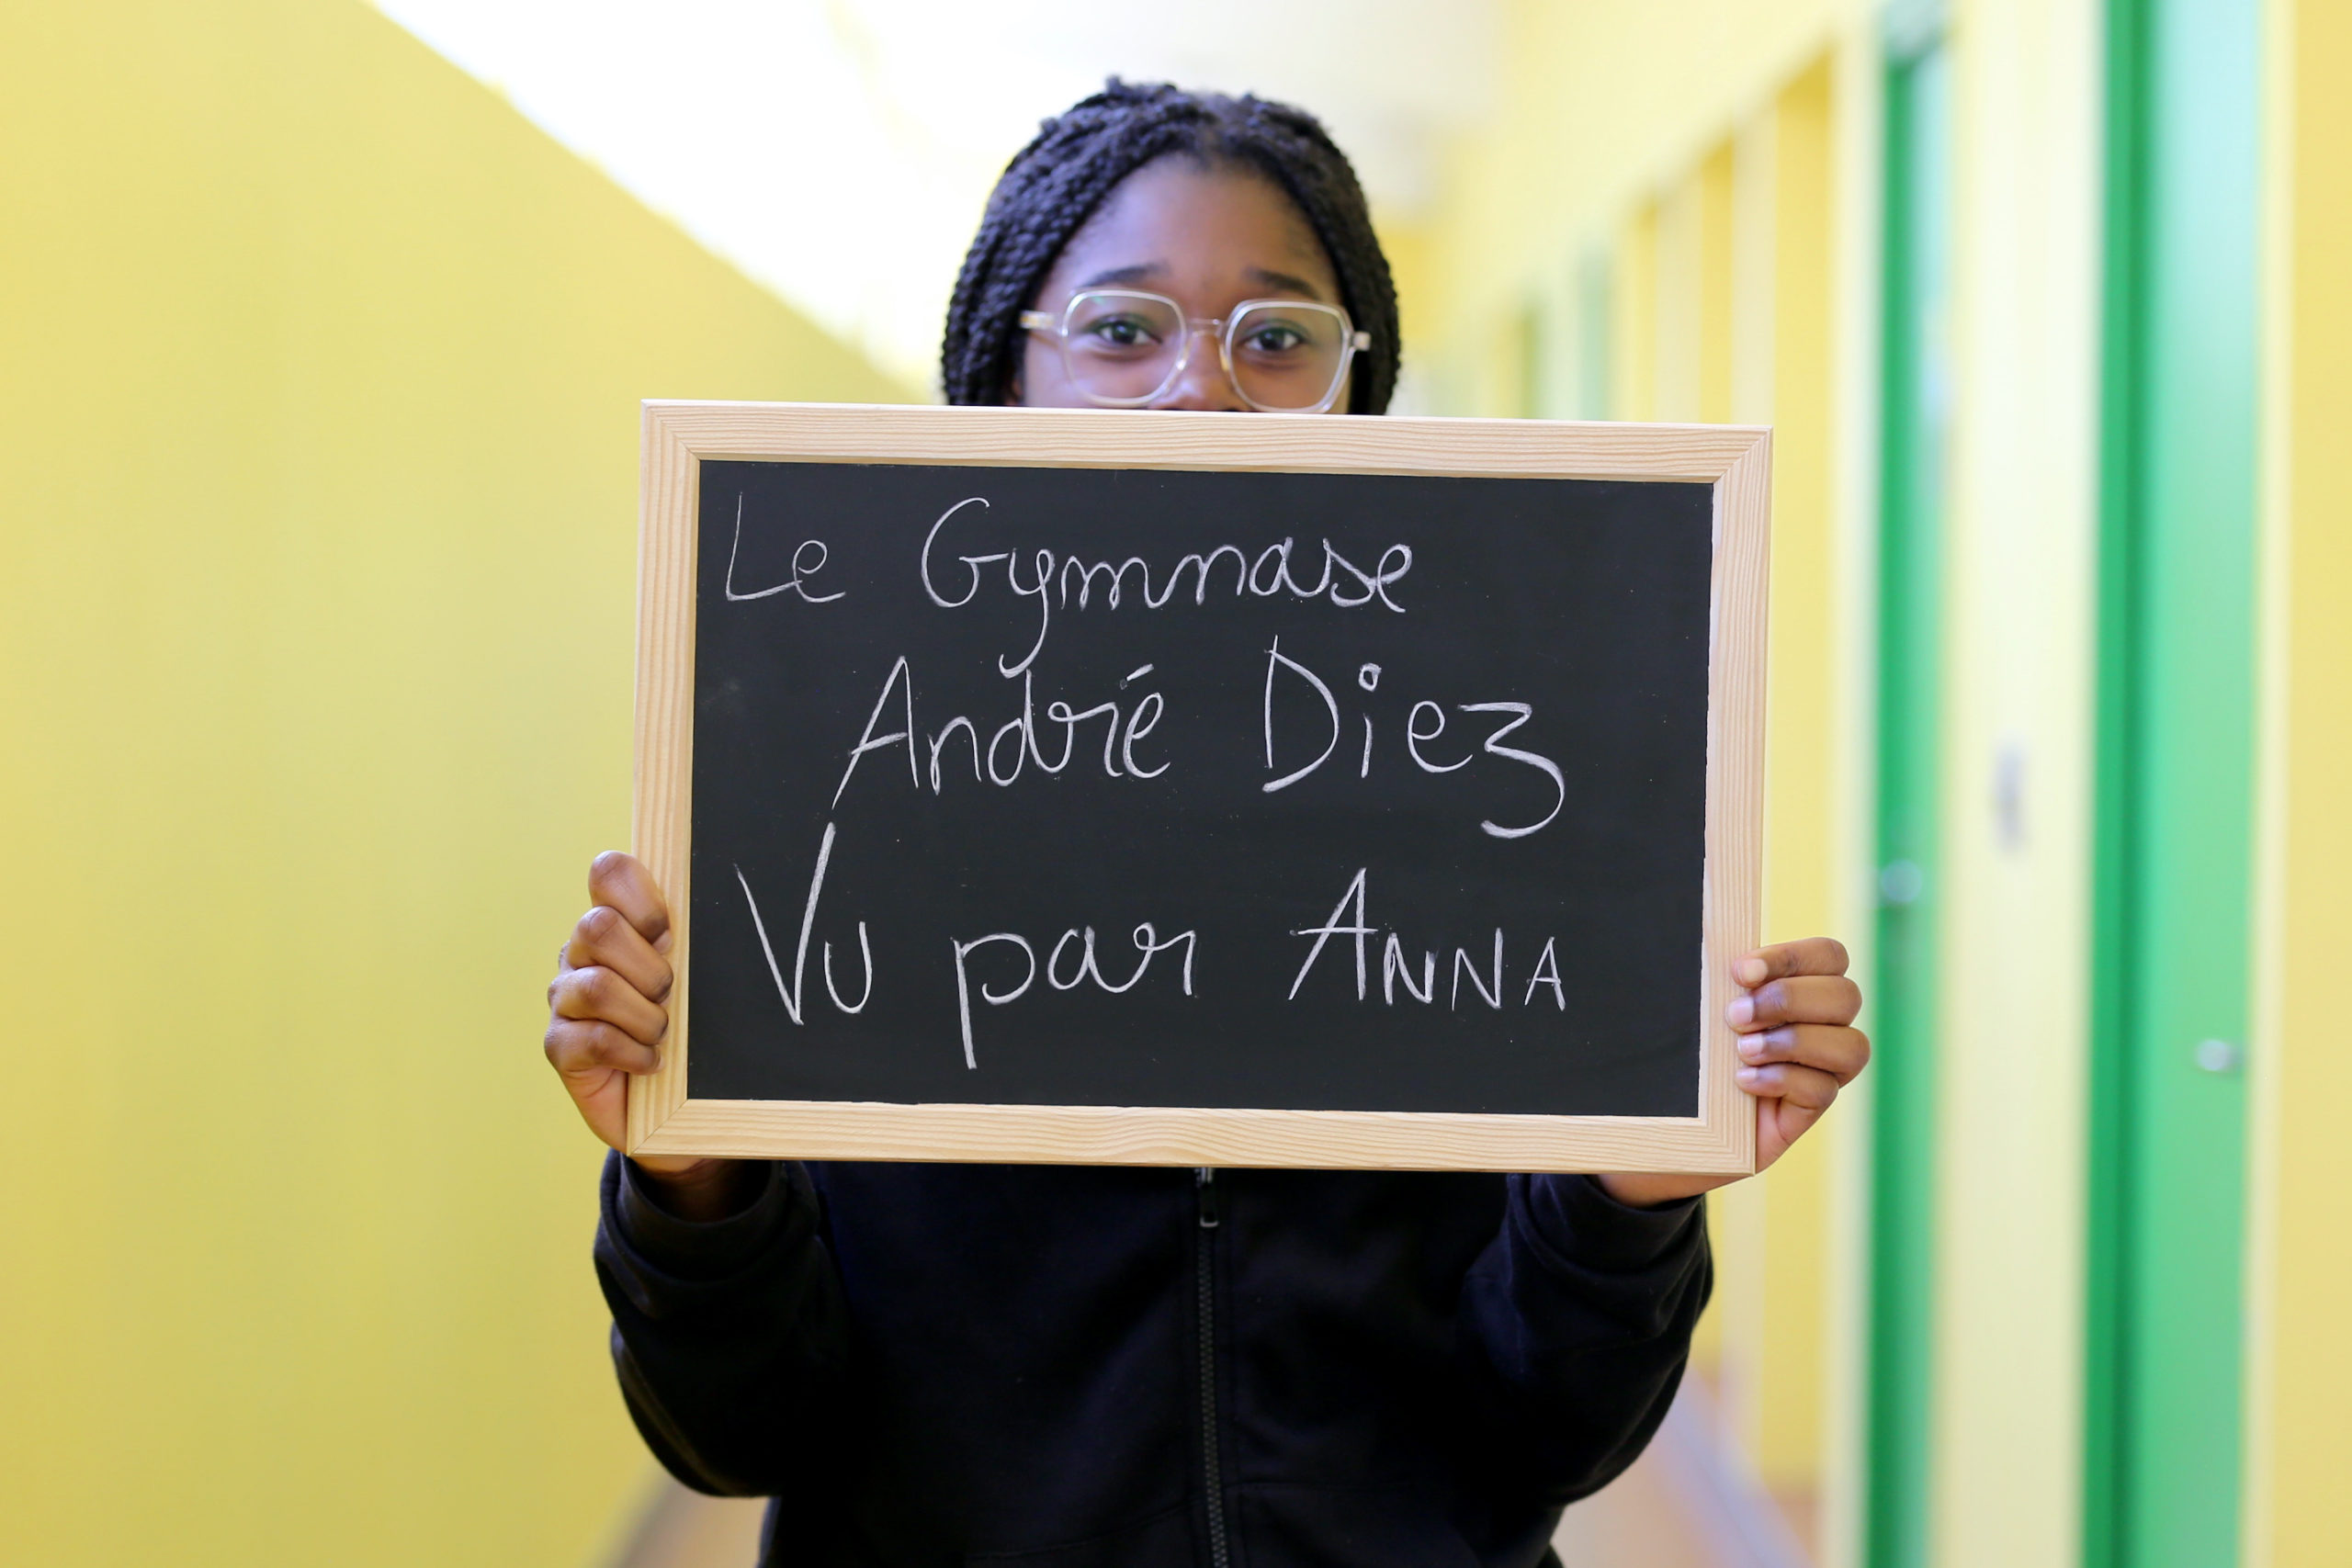 Le Gymnase
André Diez
Vu par ANNA